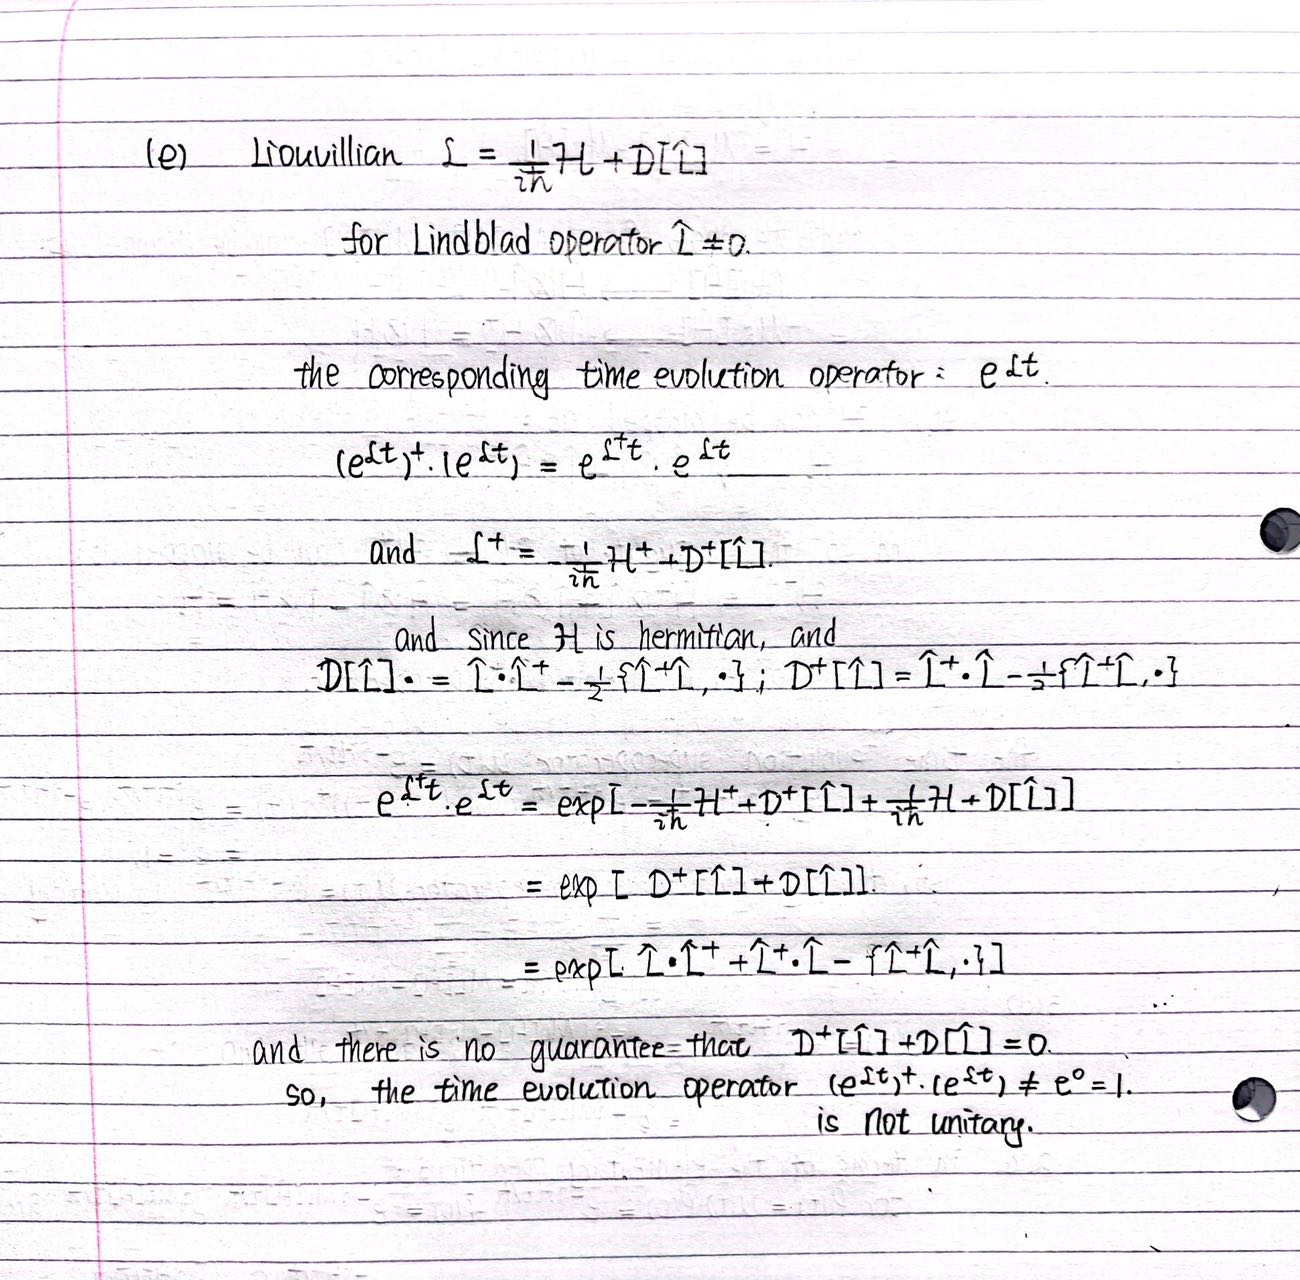 (e) Liouvillian ℒ = 1/iħ ℋ + D[L̂]
for Lindblad operator L̂ ≠ 0.
the corresponding time evolution operator : e^ℒt.
(e^ℒt)^+ · (e^ℒt) = e^ℒ^+t · e^ℒt
and ℒ^+ = -1/iħ ℋ^+ + D^+[L̂].
and since ℋ is hermitian, and
D[L̂]· = L̂·L̂^+ - 1/2{L̂^+L̂, ·} ; D^+[L̂] = L̂^+·L̂ - 1/2{L̂^+L̂, ·}
e^ℒ^+t · e^ℒt = exp[ -1/iħ ℋ^+ + D^+[L̂] + 1/iħ ℋ + D[L̂]]
= exp [ D^+[L̂] + D[L̂]].
= exp[ L̂·L̂^+ + L̂^+·L̂ - {L̂^+L̂, ·}]
and there is no guarantee that D^+[L̂] + D[L̂] = 0.
so, the time evolution operator (e^ℒt)^+ · (e^ℒt) ≠ e^0 = 1.
is not unitary.